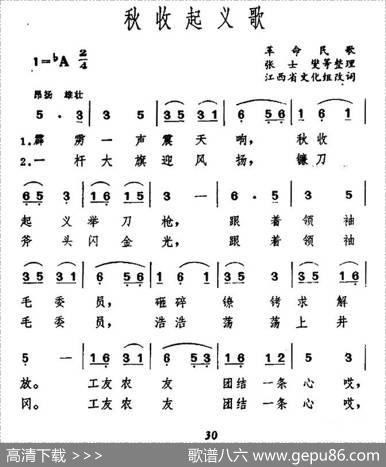 秋收起义歌
1=♭A 2/4
革命民歌
张士燮等整理
江西省文化组改词
昂扬 雄壮
5 · 3 | 5 3 | 35 31 | 6 56 |
1.霹雳一声震天响， 秋收
2.一杆大旗迎风扬， 镰刀
65 3 | 15 35 | 3 — | 6 · 5 | 3 5 |
起义举刀枪， 跟着领袖
斧头闪金光， 跟着领袖
35 31 | 6 56 | 1 3 | 2 16 |
毛委员， 砸碎镣铐求解
毛委员， 浩浩荡荡上井
5 — | 16 31 | 2 6536 | 1 63 | 2 16 |
放。 工友农友 团结一条心哎，
冈。 工友农友 团结一条心哎，
30
高清下载 >>>
歌谱八六 www.gepu86.com